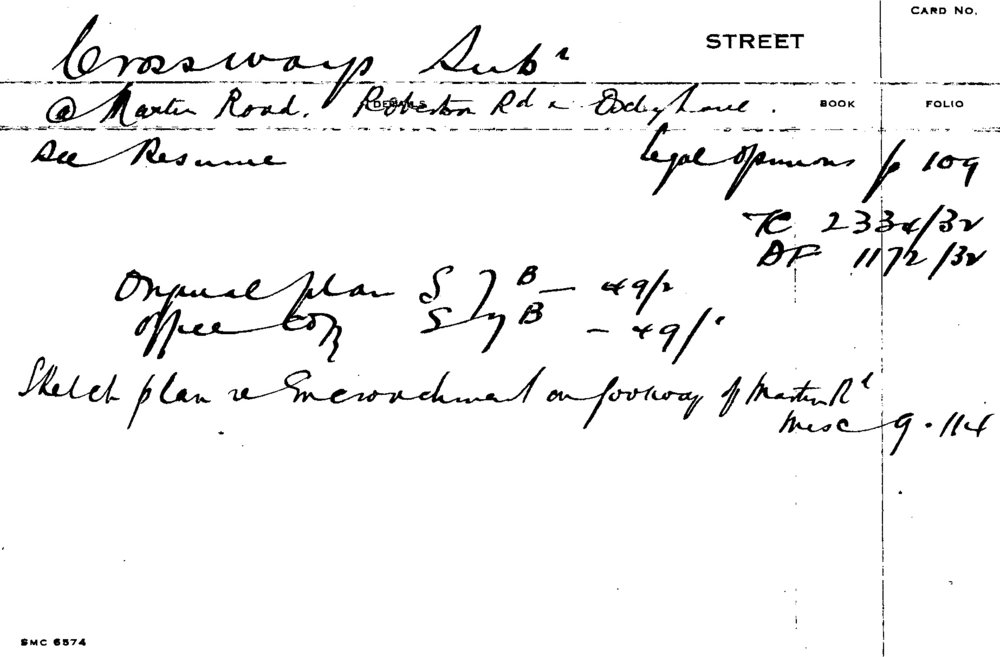 CARD NO.
Crossways Subn STREET
@ Martin Road. Roberton Rd & Oxley Lane. DETAILS BOOK FOLIO
See Resume Legal Opinions p 109
TC 2334/32
DF 1172/32
Original plan S B — 49/2
Office Copy S B — 49/1
Sketch plan re Encroachment on footway of Martin Rd
Misc 9.114
SMC 6574